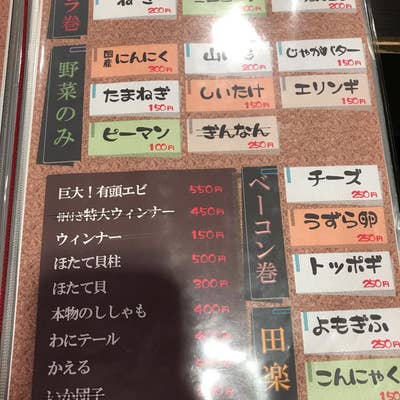 ラ巻
ねぎ
200円
200円
200円
野菜のみ
国産 にんにく
300円
山いも
じゃがバター
150円
たまねぎ
150円
しいたけ
150円
エリンギ
150円
ピーマン
100円
ぎんなん
250円
巨大！有頭エビ 550円
骨付き特大ウィンナー 450円
ウィンナー 150円
ほたて貝柱 500円
ほたて貝 300円
本物のししゃも 400円
わにテール
かえる
いか団子
ベーコン巻
チーズ
250円
うずら卵
250円
トッポギ
250円
田楽
よもぎふ
250円
こんにゃく
250円